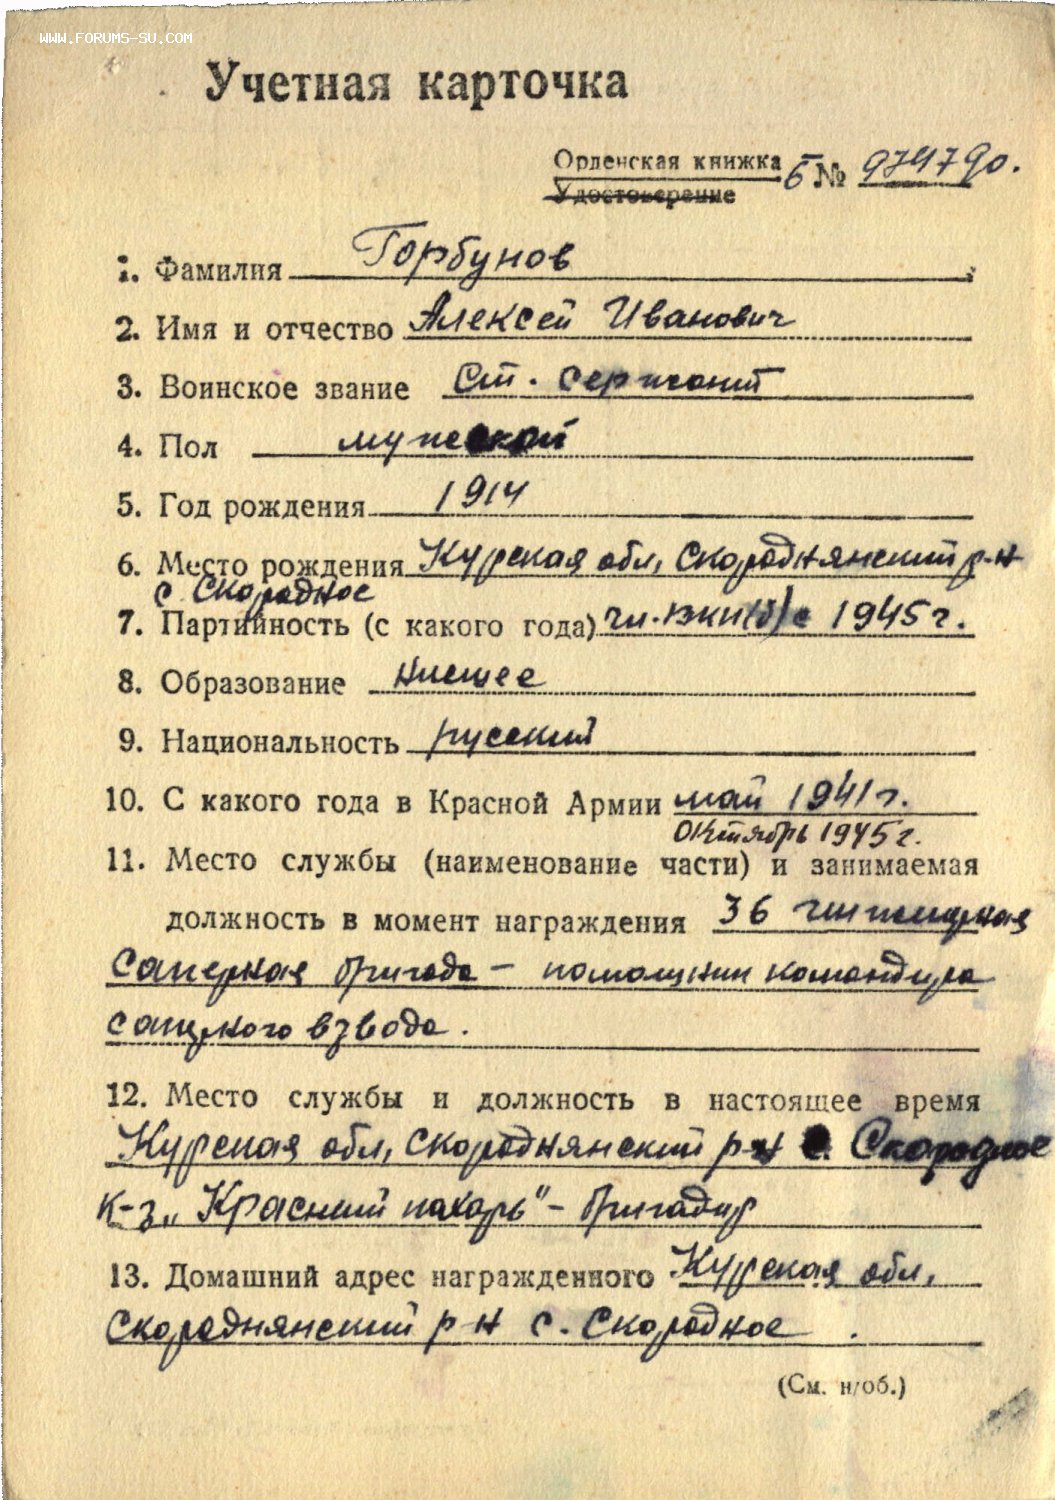 WWW.FORUMS-SU.COM
Учетная карточка
Орденская книжка
Удостоверение
Б № 974790.
1. Фамилия Горбунов
2. Имя и отчество Алексей Иванович
3. Воинское звание Ст. сержант
4. Пол мужской
5. Год рождения 1914
6. Место рождения Курская обл, Скороднянский р-н
с Скородное
7. Партийность (с какого года) чл. ВКП(б) с 1945 г.
8. Образование низшее
9. Национальность русский
10. С какого года в Красной Армии май 1941 г.
октябрь 1945 г.
11. Место службы (наименование части) и занимаемая
должность в момент награждения 36 инженерная
саперная бригада – помощник командира
саперного взвода.
12. Место службы и должность в настоящее время
Курская обл, Скороднянский р-н с. Скородное
к-з „Красный пахарь" – бригадир
13. Домашний адрес награжденного Курская обл,
Скороднянский р-н с. Скородное.
(См. н/об.)